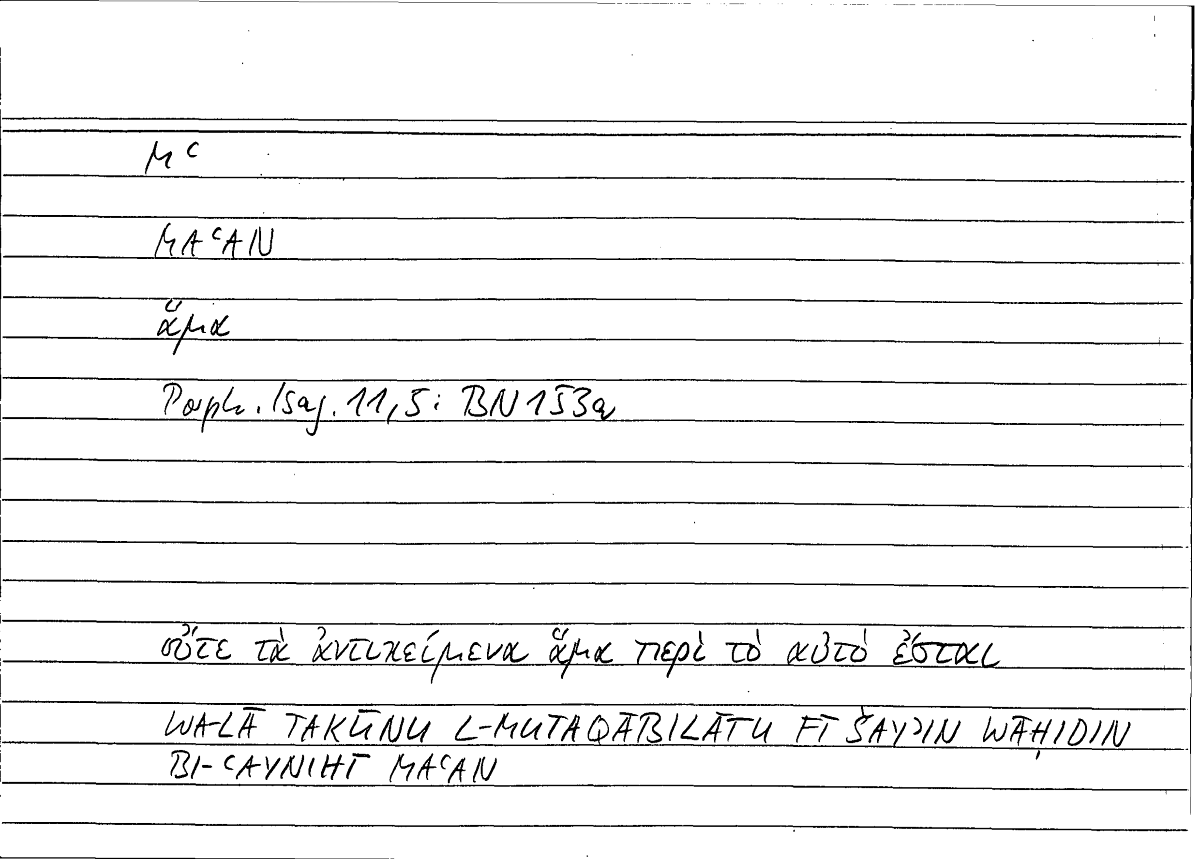 Mᶜ
MAᶜAN
ἅμα
Porph. Isag. 11,5: BN 153a
οὔτε τὰ ἀντικείμενα ἅμα περὶ τὸ αὐτὸ ἔσται
WA-LĀ TAKŪNU L-MUTAQĀBILĀTU FĪ ŠAYʾIN WĀḤIDIN
BI-ᶜAYNIHĪ MAᶜAN